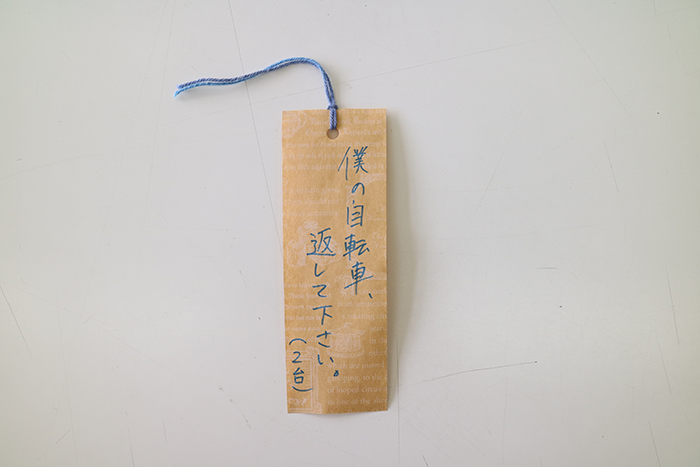 僕の自転車、
返して下さい。
(2台)